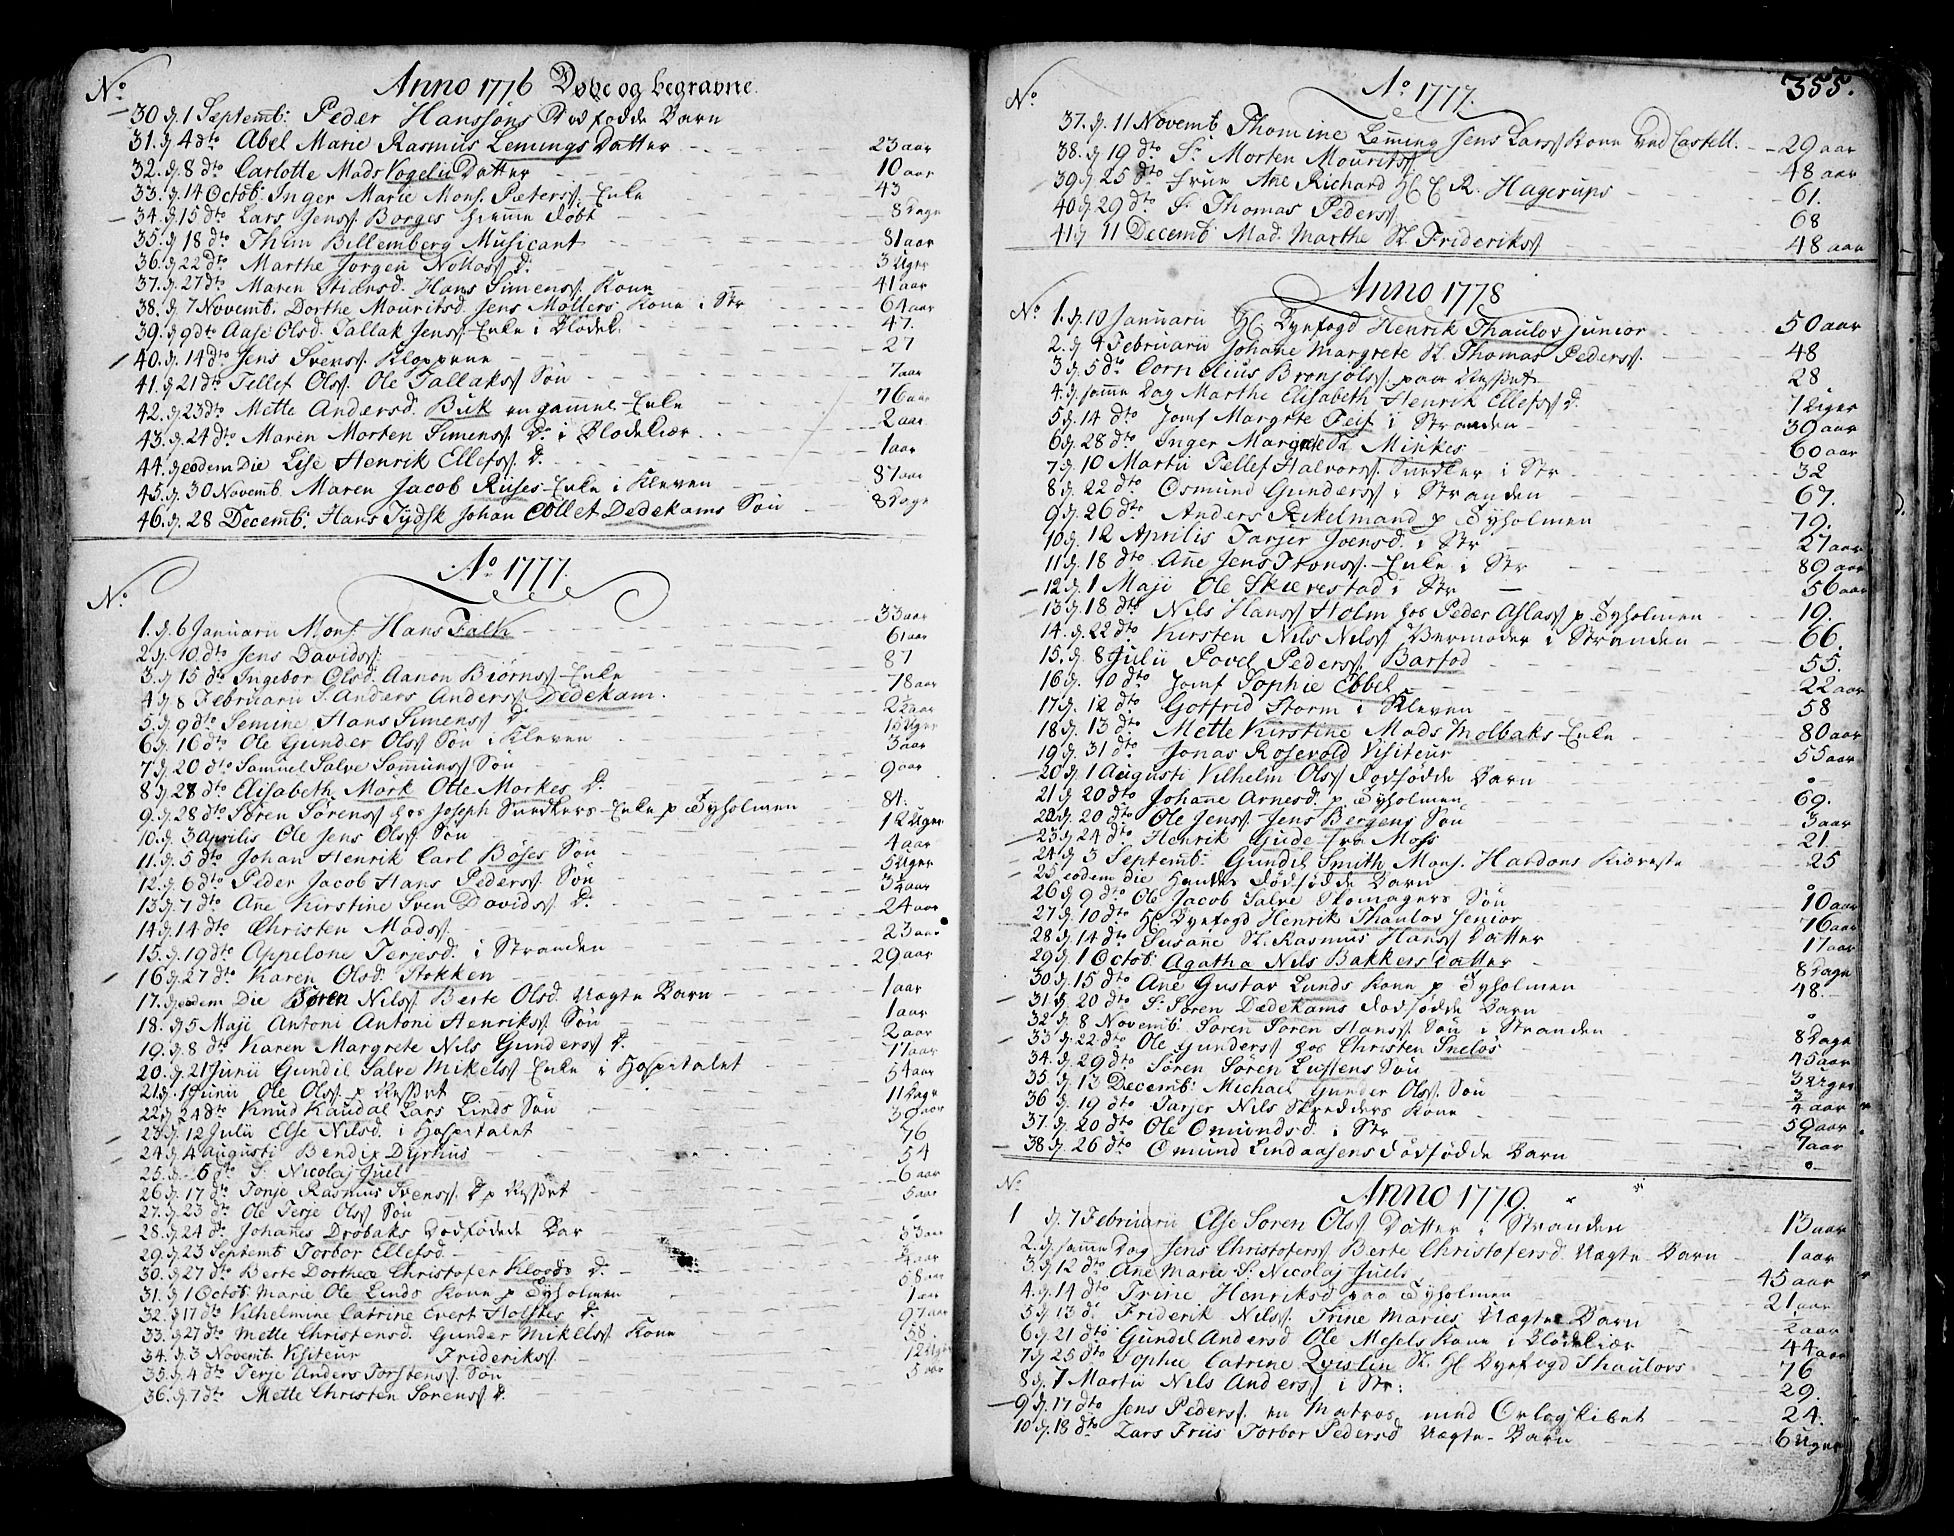 No Anno 1776 Døbe og begravne.
30. d. 1 Septemb: Peder Hanssøns Dødfødde Barn
31. d. 4 dto Abel Marie Rasmus Lemings Datter 23 aar
32. d. 8 dto Carlotte Mads Vogelii Datter 10 aar
33. d. 14 Octob: Inger Marie Mons. Pæterss. Enke 43
34. d. 15 dto Lars Jenss. Borges hiemme døbt 8 Dage
35. d. 18 dto Thim Billemberg Musicant 81 aar
36. d. 22 dto Marthe Jørgen D. 3 Uger
37. d. 27 dto Maren Hans Simenss. Kone 41 aar
38. d. 7 Novemb. Dorthe Mouritsd. Jens Møllers Kone i Str 64 aar
39. d. 9 dto Aase Olsd. Tallak Jenss. Enke i Blødek. 47.
40. d. 14 dto Jens Svenss. Kloppene 27
41. d. 21 dto Tellef Olss. Ole Tallakss Søn 7 aar
42. d. 23 dto Mette Andersd. Buk en gammel Enke 76 aar
43. d. 24 dto Maren Morten Simenss. D. i Blødekiær 2 aar
44. d. eodem Die Lise Henrik Ellefss. D. 1 aar
45. d. 30 Novemb. Maren Jacob Riises Enke i Kleven 87 aar
46. d. 28 Decemb: Hans Tydsk Johan Collet Dedekams Søn 8 Dage
Ao 1777.
No
1. d. 6 Januarii Mons. Hans Falk 33 aar
2. d. 10. dto Jens Davidss. 61 aar
3. d. 15 dto Ingebor Olsd. Aanon Biørnss. Enke 87
4. d. 8 Februarii S. Anders Anderss. Dedekam. 78 aar
5. d. 9 dto Semine Hans Simenss. D.
6. d. 16 dto Ole Gunder Olss. Søn i Kleven
7. d. 20 dto Samuel Salve Søn 3 aar
8. d. 28 dto Elisabeth Mork Otte Morkes D. 9 aar
9. d. 28 dto Søren Sørenss. hos Joseph Snedkers Enke p. Tyholmen 84.
10. d. 3 Aprilis Ole Jens Olss. Søn 12 Uger
11. d. 5 dto Johan Henrik Carl Boses Søn 4 aar
12. d. 6 dto Peder Jacob Hans Pederss. Søn 5 Uger
13. d. 7 dto Ane Kirstine Sven Davidss. D.
14. d. 14 dto Christen Madss. 24 aar
15. d. 19 dto Appelone Terjesd. i Stranden 23 aar
16. d. 27 dto Karen Olsd. Stokken 29 aar
17. d. eodem Die Søren Nilss. Berte Olsd. Uægte Barn 1 aar
18. d. 5 Maji Antoni Antoni Henrikss. Søn 1 aar
19. d. 8 dto Karen Margrete Nils Gunderss. D. 2 aar
20. d. 21 Junii Gundil Salve Mikelss. Enke i Hospitalet 77 aar
21. d. 1 Junii Ole Olss. p. 54 aar
22. d. 24 dto Knud Kaudal Lars Linds Søn 11 Dage
23. d. 12 Julii Else Nilsd. i Hospitalet 30 aar
24. d. 4 Augusti Bendix Dyrhus 76
25. d. 6 dto S. Nicolaj Juel 54
26. d. 17 dto Tonje Rasmus Svenss. D. p. 6 aar
27. d. 23 dto Ole Terje Olss. Søn 5 aar
28. d. 24 do Johanes Drøbaks Dødfødde Bar
29. d. 23 Septemb Torbor Ellefsd. 53 aar
30. d. 27 dto Berte Dorthea Christofer D.
31. d. 1 Octob. Marie Ole Linds Kone p. Tyholmen 58 aar
32. d. 17 dto Vilhelmine Catrine Evert Holskes D. 1 aar
33. d. 27 dto Mette Christensd. Gunder Mikelss. Kone 97 aar
34. d. 3 Novemb. Visiteur Frideriks. 58.
35. d. 4 dto Terje Anders Torstenss. Søn 12 Uger
36. d. 7 dto Mette Christen Sørenss. D. 5 aar
355.
Ao 1777.
No
37. d. 11 Novemb Thomine Leming Jens Larss. Kone ved Castell. 29 aar
38. d. 19 dto S. Morten Mouritss. 48 aar
39. d. 25 dto Frue Ane Richard H. C. R. Hagerups 61.
40. d. 29 dto S. Thomas Pederss. 68
41. d. 11 Decemb Mad. Marthe Sl. Friderikss. 48 aar
Anno 1778
No 1. d. 10 Januarii Hr. Byefogd Henrik Thaulov Junior 50 aar
2. d. 4 Februarii Johane Margrete Sl. Thomas Pederss. 48
3. d. 5 dto Cornelius paa 28
4. d. samme Dag Marthe Elisabeth Henrik Ellefss. D. 7 Uger
5. d. 14 dto Jomf Margrete Feif i Stranden 30 aar
6. d. 28 dto Inger Margrete Sl. Minkes 60 aar
7. d. 10 Martii Tellef Halvorss. Snedker i Str 32
8. d. 22 dto Osmund Gunderss. i Stranden 67.
9. d. 26 dto Anders Rekelmand p. Tyholmen 79.
10. d. 12 Aprilis Tarjer Svensd. i Str 27 aar
11. d. 18 dto Ane Jens Tronss. Enke i Str 89 aar
12. d. 1 Maji Ole Skierestad i Str 56 aar
13. d. 18 dto Nils Hanss. Holm hos Peder Aslass. p. Tyholmen 19.
14. d. 22 dto Kirsten Nils Nilss. Vermoder i Stranden 66.
15. d. 8 Julii Povel Pederss. Barfod 55.
16. d. 10 dto Jomf Sophie Ebbel 22 aar
17. d. 12 dto Gotfrid Storm i Kleven 58
18. d. 13 dto Mette Kirstine Mads Molbaks Enke 80 aar
19. d. 31 dto Jonas Rosevold Visiteur 55 aar
20. d. 1 Augusti Vilhelm Olss. dødfødde Barn 0
21. d. 20 dto Johane Arnesd. p. Tyholmen 69.
22. d. 20 dto Ole Jenss. Jens Bergens Søn 3 aar
23. d. 24 dto Henrik Gude fra Moss 21.
24. d. 3 Septemb: Gundil Smith Mons. Hardons Kiæreste 25
25 eodem die Hendes dødfødde Barn 0
26. d. 9 dto Ole Jacob Salve Skomagers Søn 10 aar
27. d. 10 dto Hr Byefogd Henrik Thaulov Senior 76 aar
28. d. 14 dto Susane Sl. Rasmus Hanss. Datter 17 aar
29. d. 1 Octob: Agatha Nils Bakkers Datter 8 Dage
30. d. 15 dto Ane Gustav Lunds Kone p. Tyholmen 48.
31. d. 20 dto S. Søren Dædekams dødfødde Barn 0
32. d. 8 Novemb: Søren Søren Hanss. Søn i Stranden 8 Dage
33. d. 22 dto Ole Gunderss. hos Christen Sneløs 45 aar
34. d. 29 dto Søren Søren Søn 3 Uger
35. d. 13 Decemb: Michael Gunder Olss. Søn 3/4 aar
36. d. 19 dto Tarjer Nils Skredders Kone 50 aar
37. d. 20 dto Ole Omundsd. i Str 7 aar
38. d. 26 dto Omund Lindaasens dødfødde Barn 0
No Anno 1779
1 d. 7 Februarii Else Søren Olss. Datter i Stranden 13 aar
2. d. samme Dag Jens Christoferss. Berte Christofersd. Uægte Barn 1 aar
3. d. 12 dto Ane Marie S. Nicolaj Juels 45 aar
4. d. 14 dto Trine Henriksd paa Tyholmen 21 aar
5. d. 13 dto Friderik Nilss. Trine Maries Uægte Barn
6. d. 21 dto Gundil Andersd Ole Mesels Kone i Blødekiær 44 aar
7. d. 25 dto Sophie Catrine Qvislin Sl. Hr Byefogd Thaulovs 76
8. d. 1 Martii Nils Anderss. i Str: 29.
9. d. 17 dto Jens Pederss. en Matros med Orlogskibet 24.
10. d. 18 dto Lars Friis Torbor Pedersd Uægte Barn 6 Uger